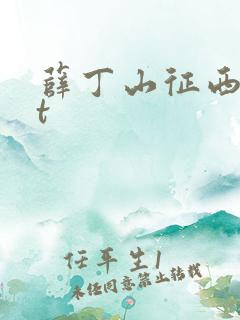 薛丁山征西
t
任平生1
未经同意禁止转载